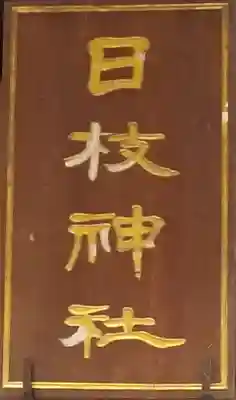 日枝神社